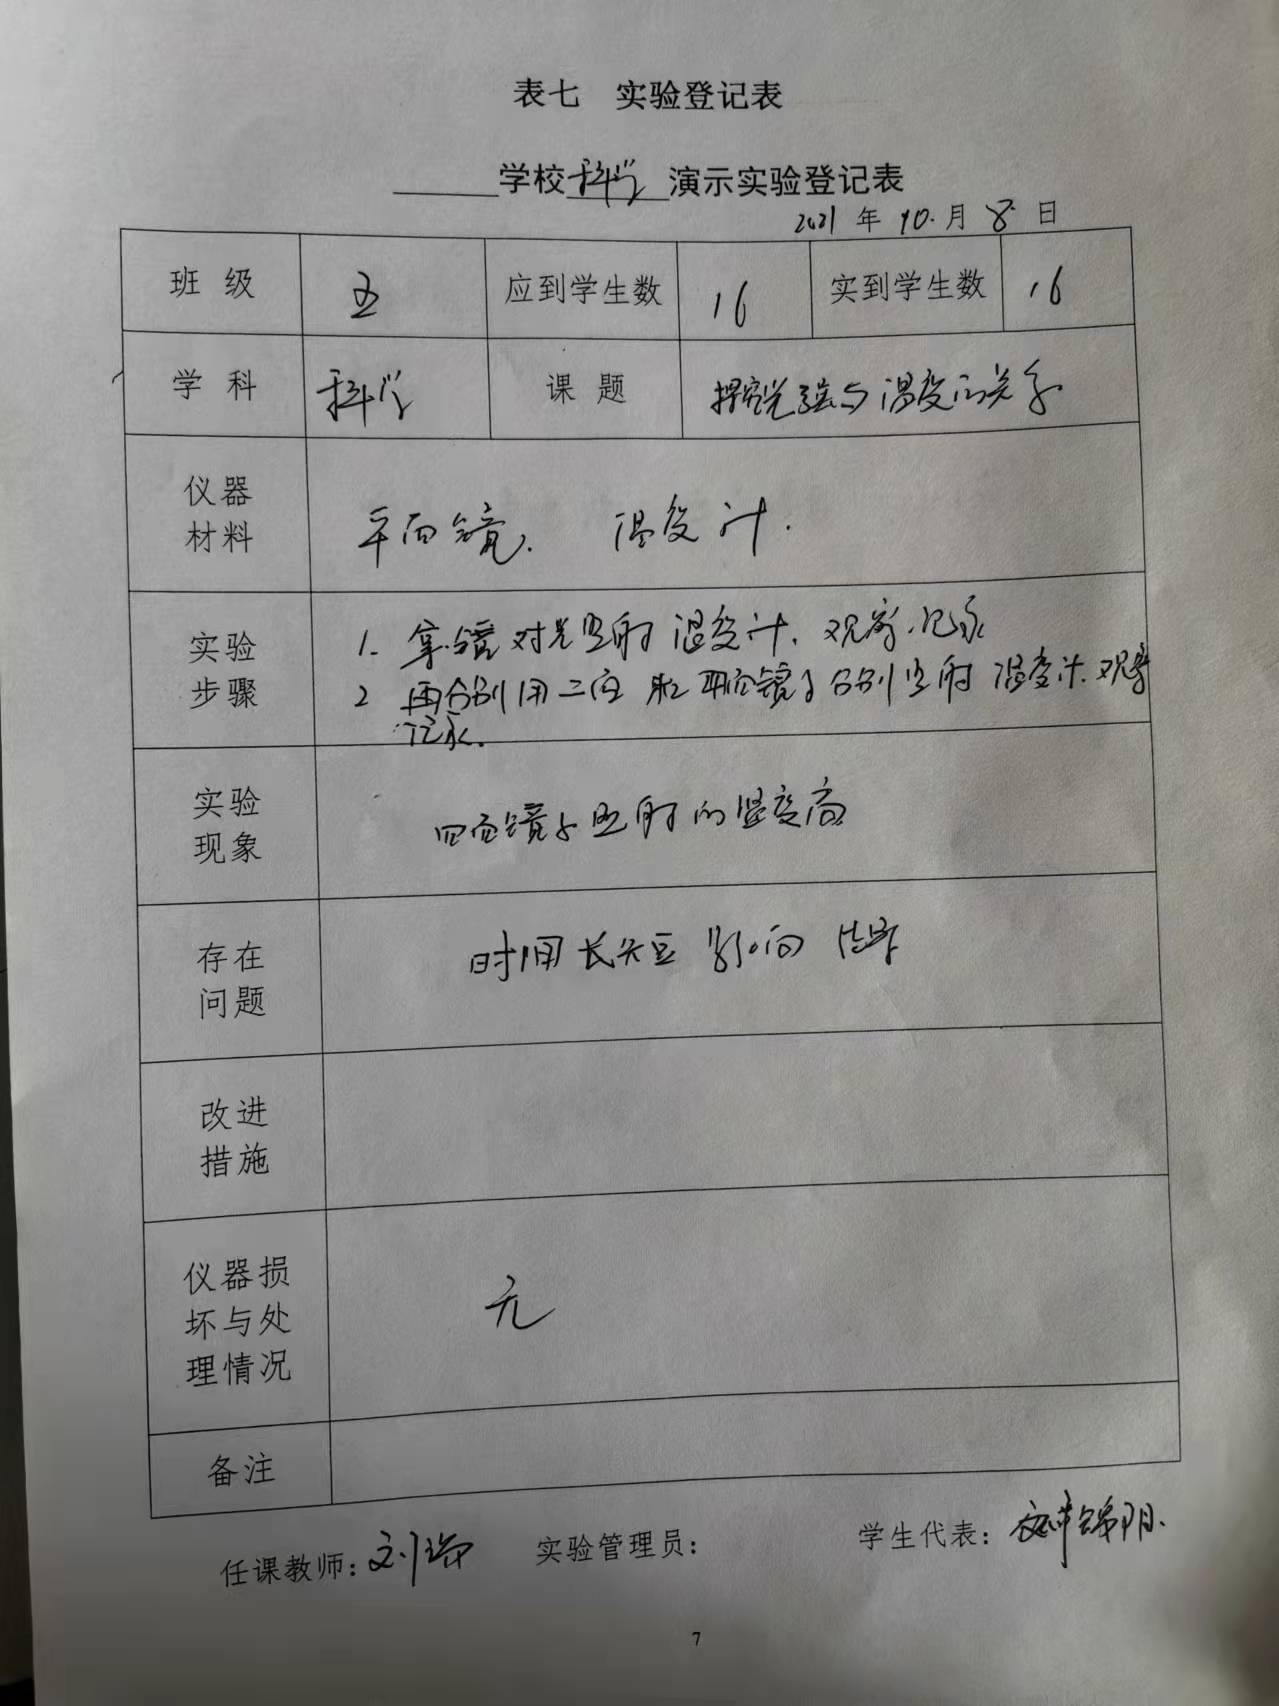 表七 实验登记表
______学校科学演示实验登记表
2021年10.月8日
班 级 五 应到学生数 16 实到学生数 16
学 科 科学 课 题 探究光强与温度的关系
仪器
材料
平面镜. 温度计.
实验
步骤
1. 拿镜对光照射温度计. 观察.记录
2 再分别用二面 和四面镜子分别照射温度计.观察
记录.
实验
现象
四面镜子照射的温度高
存在
问题
时间长短影响结果
改进
措施
仪器损
坏与处
理情况
无
备注
任课教师: 实验管理员: 学生代表:
7